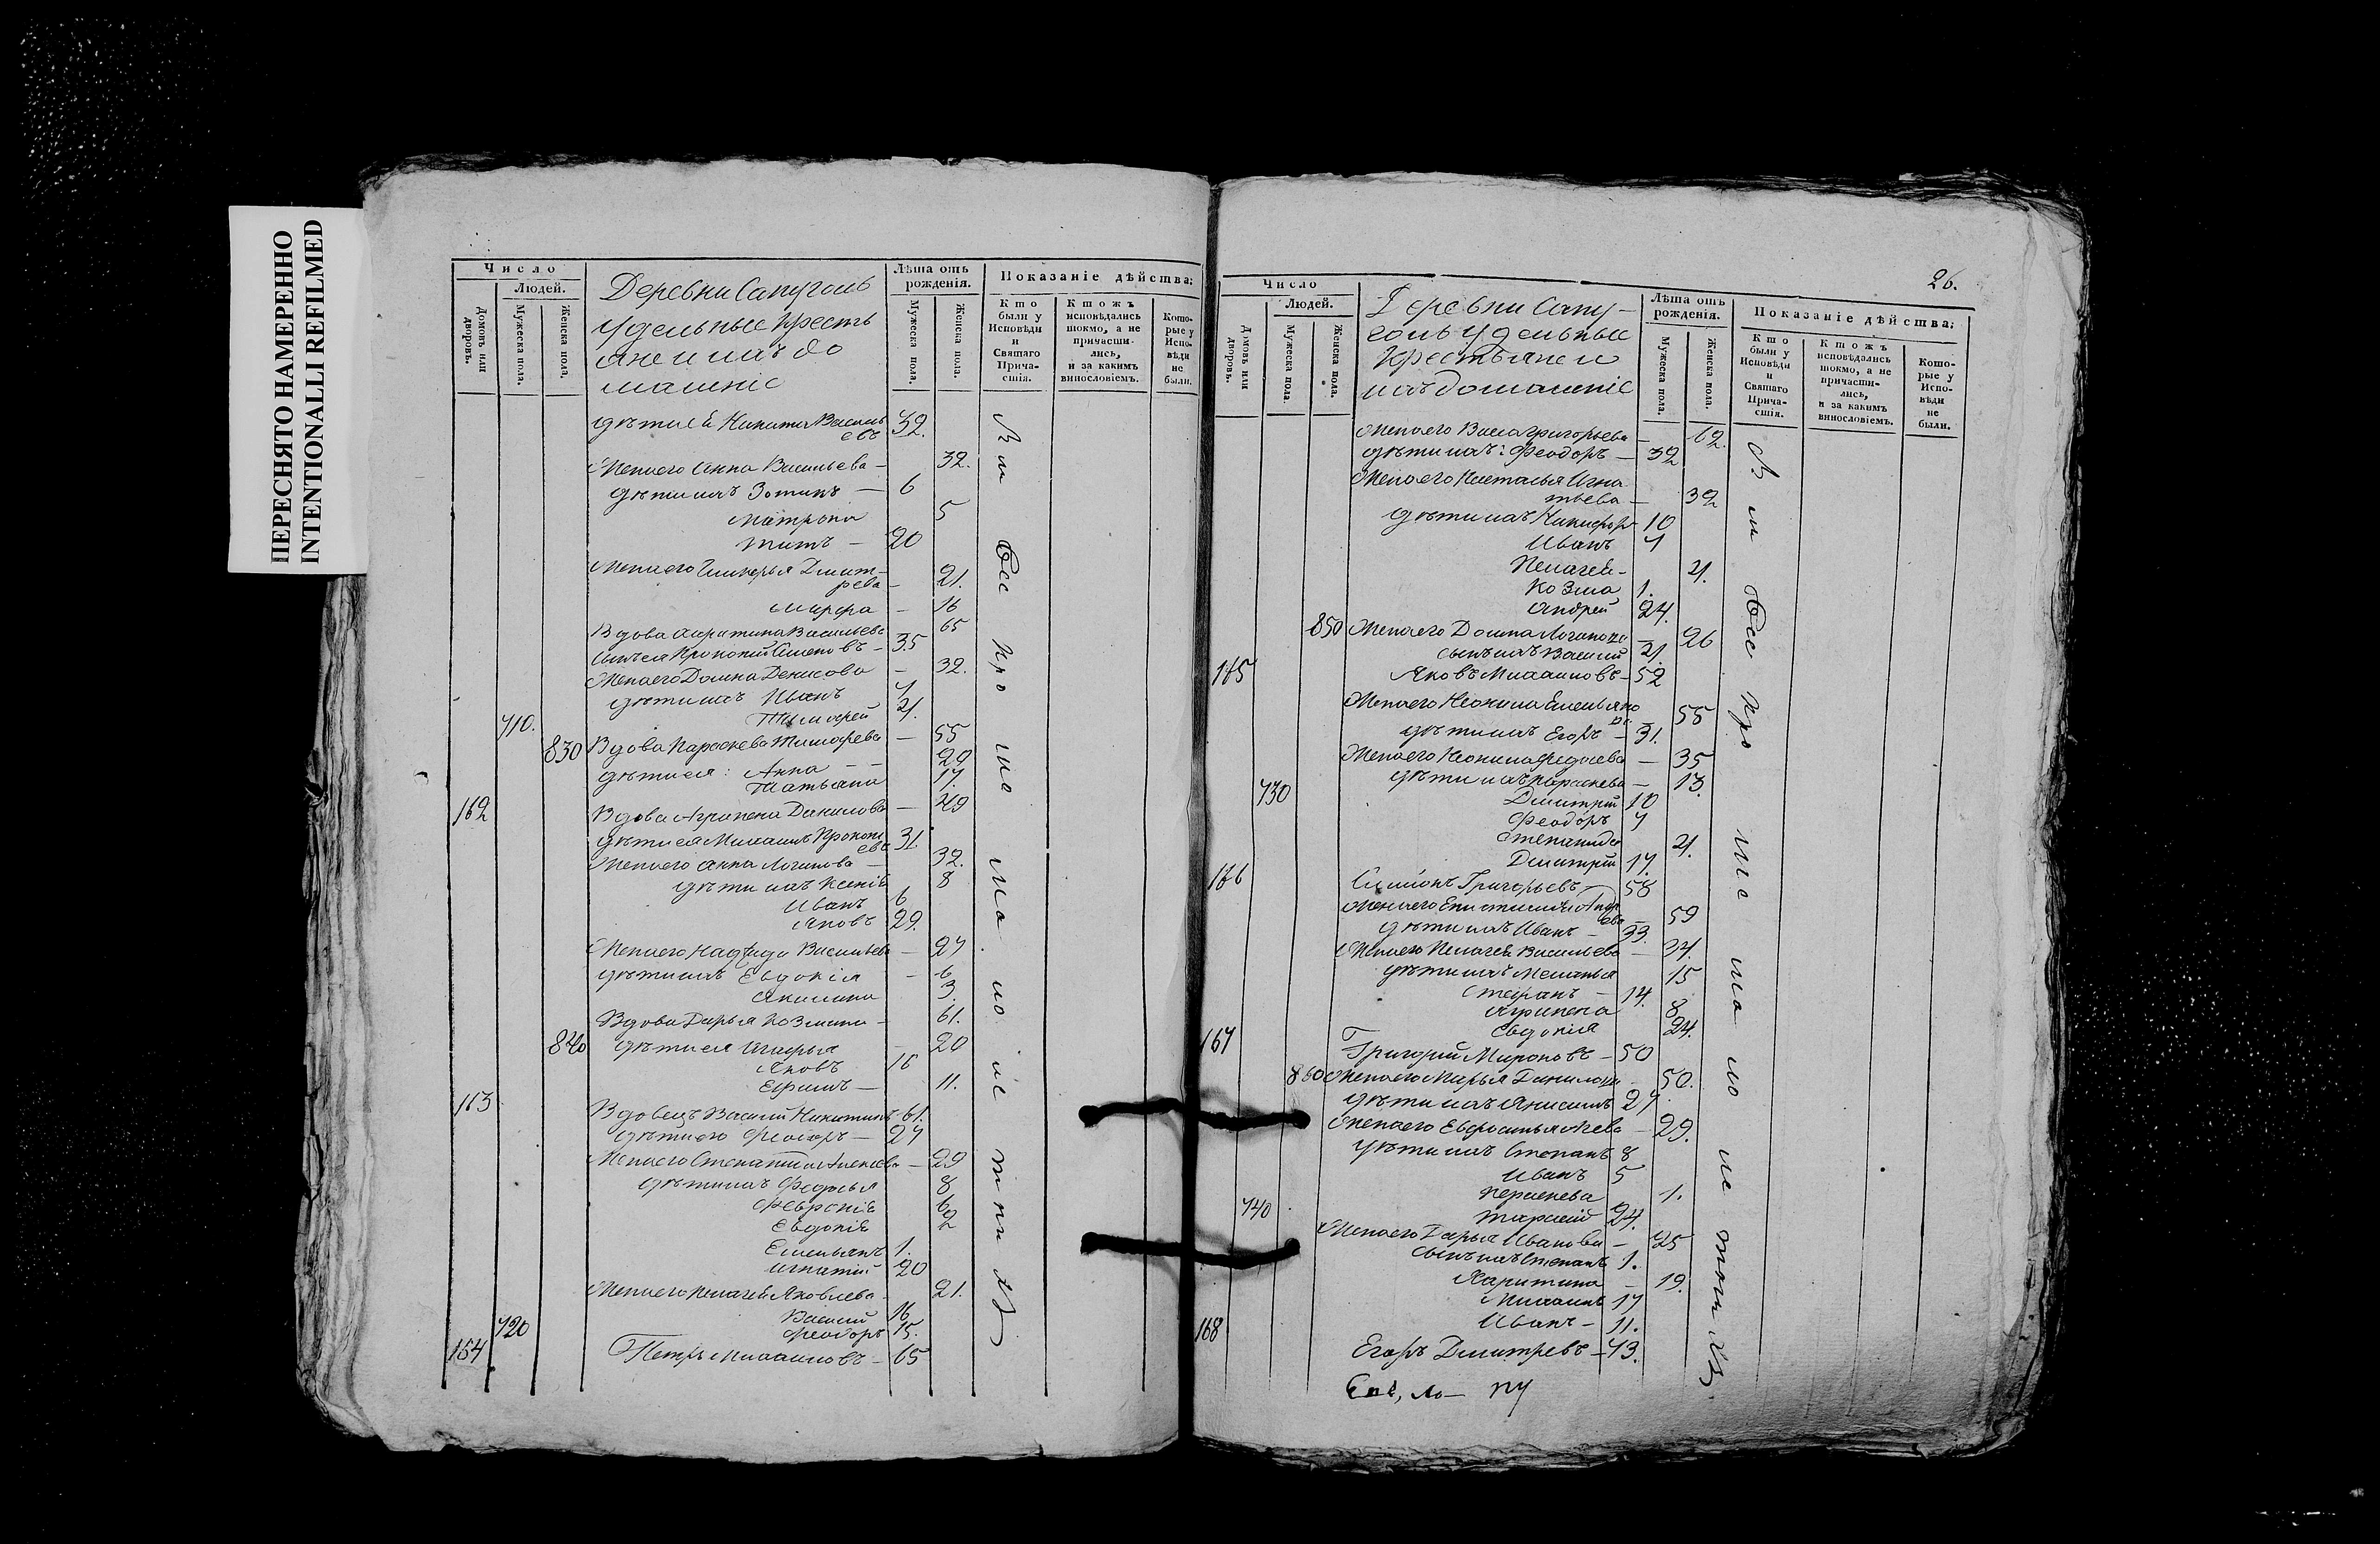 ПЕРЕСНЯТО НАМЕРЕННО
INTENTIONALLI REFILMED
Число
Людей.
Домовъ или дворовъ.
Мужеска пола.
Женска пола.
Деревни Сапуголь
удельные кресть
яне и ихъ до
машніе
Лѣта отъ рожденія.
Мужеска пола.
Женска пола.
Показаніе дѣйства;
Кто были у Исповѣди и Святаго Причастія.
Ктожъ исповѣдались токмо, а не причастились, и за какимъ винословіемъ.
Которые у Исповѣди не были.
дѣти ея Никита Василь
евъ 32.
Жена его Анна Васильева — 32.
дѣти ихъ Зотикъ — 6
Матрона 5
Титъ — 20
Жена его Гликерья Дмит-
рева — 21.
Марфа — 16
Вдова Харитина Васильева 65
Сынъ ея Прокопій Семеновъ — 35
Жена его Домна Денисова — 32.
дѣти ихъ Иванъ 7
710. Тимофей 4.
830 Вдова Параскева Тимофева — 55
дѣти ея: Анна — 29
Татьяна 17.
162 Вдова Агрипена Данилова — 49
дѣти ея Михаилъ Прокопі
евъ 31.
Жена его Анна Логинова — 32.
дѣти ихъ Ксенія 8
Иванъ 6
Яковъ 29.
Жена его Надежда Васильева — 27
дѣти ихъ Евдокія — 6
Акилина 3.
Вдова Дарья Козмина — 61.
840 дѣти ея Агафья 20
Яковъ 16
Ефимъ — 11.
163 Вдовецъ Василій Никитинъ 61.
дѣти его Феодоръ — 27
Жена его Степанида Алексева — 29
дѣти ихъ Федосья 8
Февронія 6
Евдокія 2
Емельянъ 1.
Игнатій 20
Жена его Пелагея Яковлева 21.
Василій 16
720 Феодоръ 15.
164 Петръ Михайловъ — 65
26.
Число
Людей.
Домовъ или дворовъ.
Мужеска пола.
Женска пола.
Деревни Сапу-
голь удельные
крестьяне и
ихъ домашніе
Лѣта отъ рожденія.
Мужеска пола.
Женска пола.
Показаніе дѣйства;
Кто были у Исповѣди и Святаго Причастія.
Ктожъ исповѣдались токмо, а не причастились, и за какимъ винословіемъ.
Которые у Исповѣди не были.
Жена его Васса Григорьева — 62.
дѣти ихъ: Феодоръ — 32
Жена его Наталья Игна
тьева — 32
дѣти ихъ Никифоръ 10
Иванъ 7
Пелагея — 4.
Козма 1.
Андрей 24.
850 Жена его Домна Логинова — 26
сынъ ихъ Василій 4.
165 Яковъ Михайловъ — 52
Жена его Неонила Емельяно
ва — 55
дѣти ихъ Егоръ — 31.
Жена его Неонила Федосева — 35
дѣти ихъ Параскева — 13.
730 Дмитрій 10
Феодоръ 7
Степанида 4.
Дмитрій 17.
166 Симіонъ Григорьевъ — 58
Жена его Епистимія Андр
ева — 59
дѣти ихъ Иванъ — 33.
Жена его Пелагея Васильева — 34.
дѣти ихъ Меланья 15
Стефанъ — 14.
Агрипена 8
Евдокія 24.
167 Григорій Мироновъ — 50
860 Жена его Марья Данилова 50.
дѣти ихъ Анисимъ 27.
Жена его Евфросинья — 29.
дѣти ихъ Степанъ 8
Иванъ 5
Параскева 1.
740 Тарасій 24.
Жена его Дарья Иванова — 25
сынъ ихъ Степанъ 1.
Харитина — 19.
Михаилъ 17
Иванъ — 11.
168 Егоръ Дмитревъ — 73.